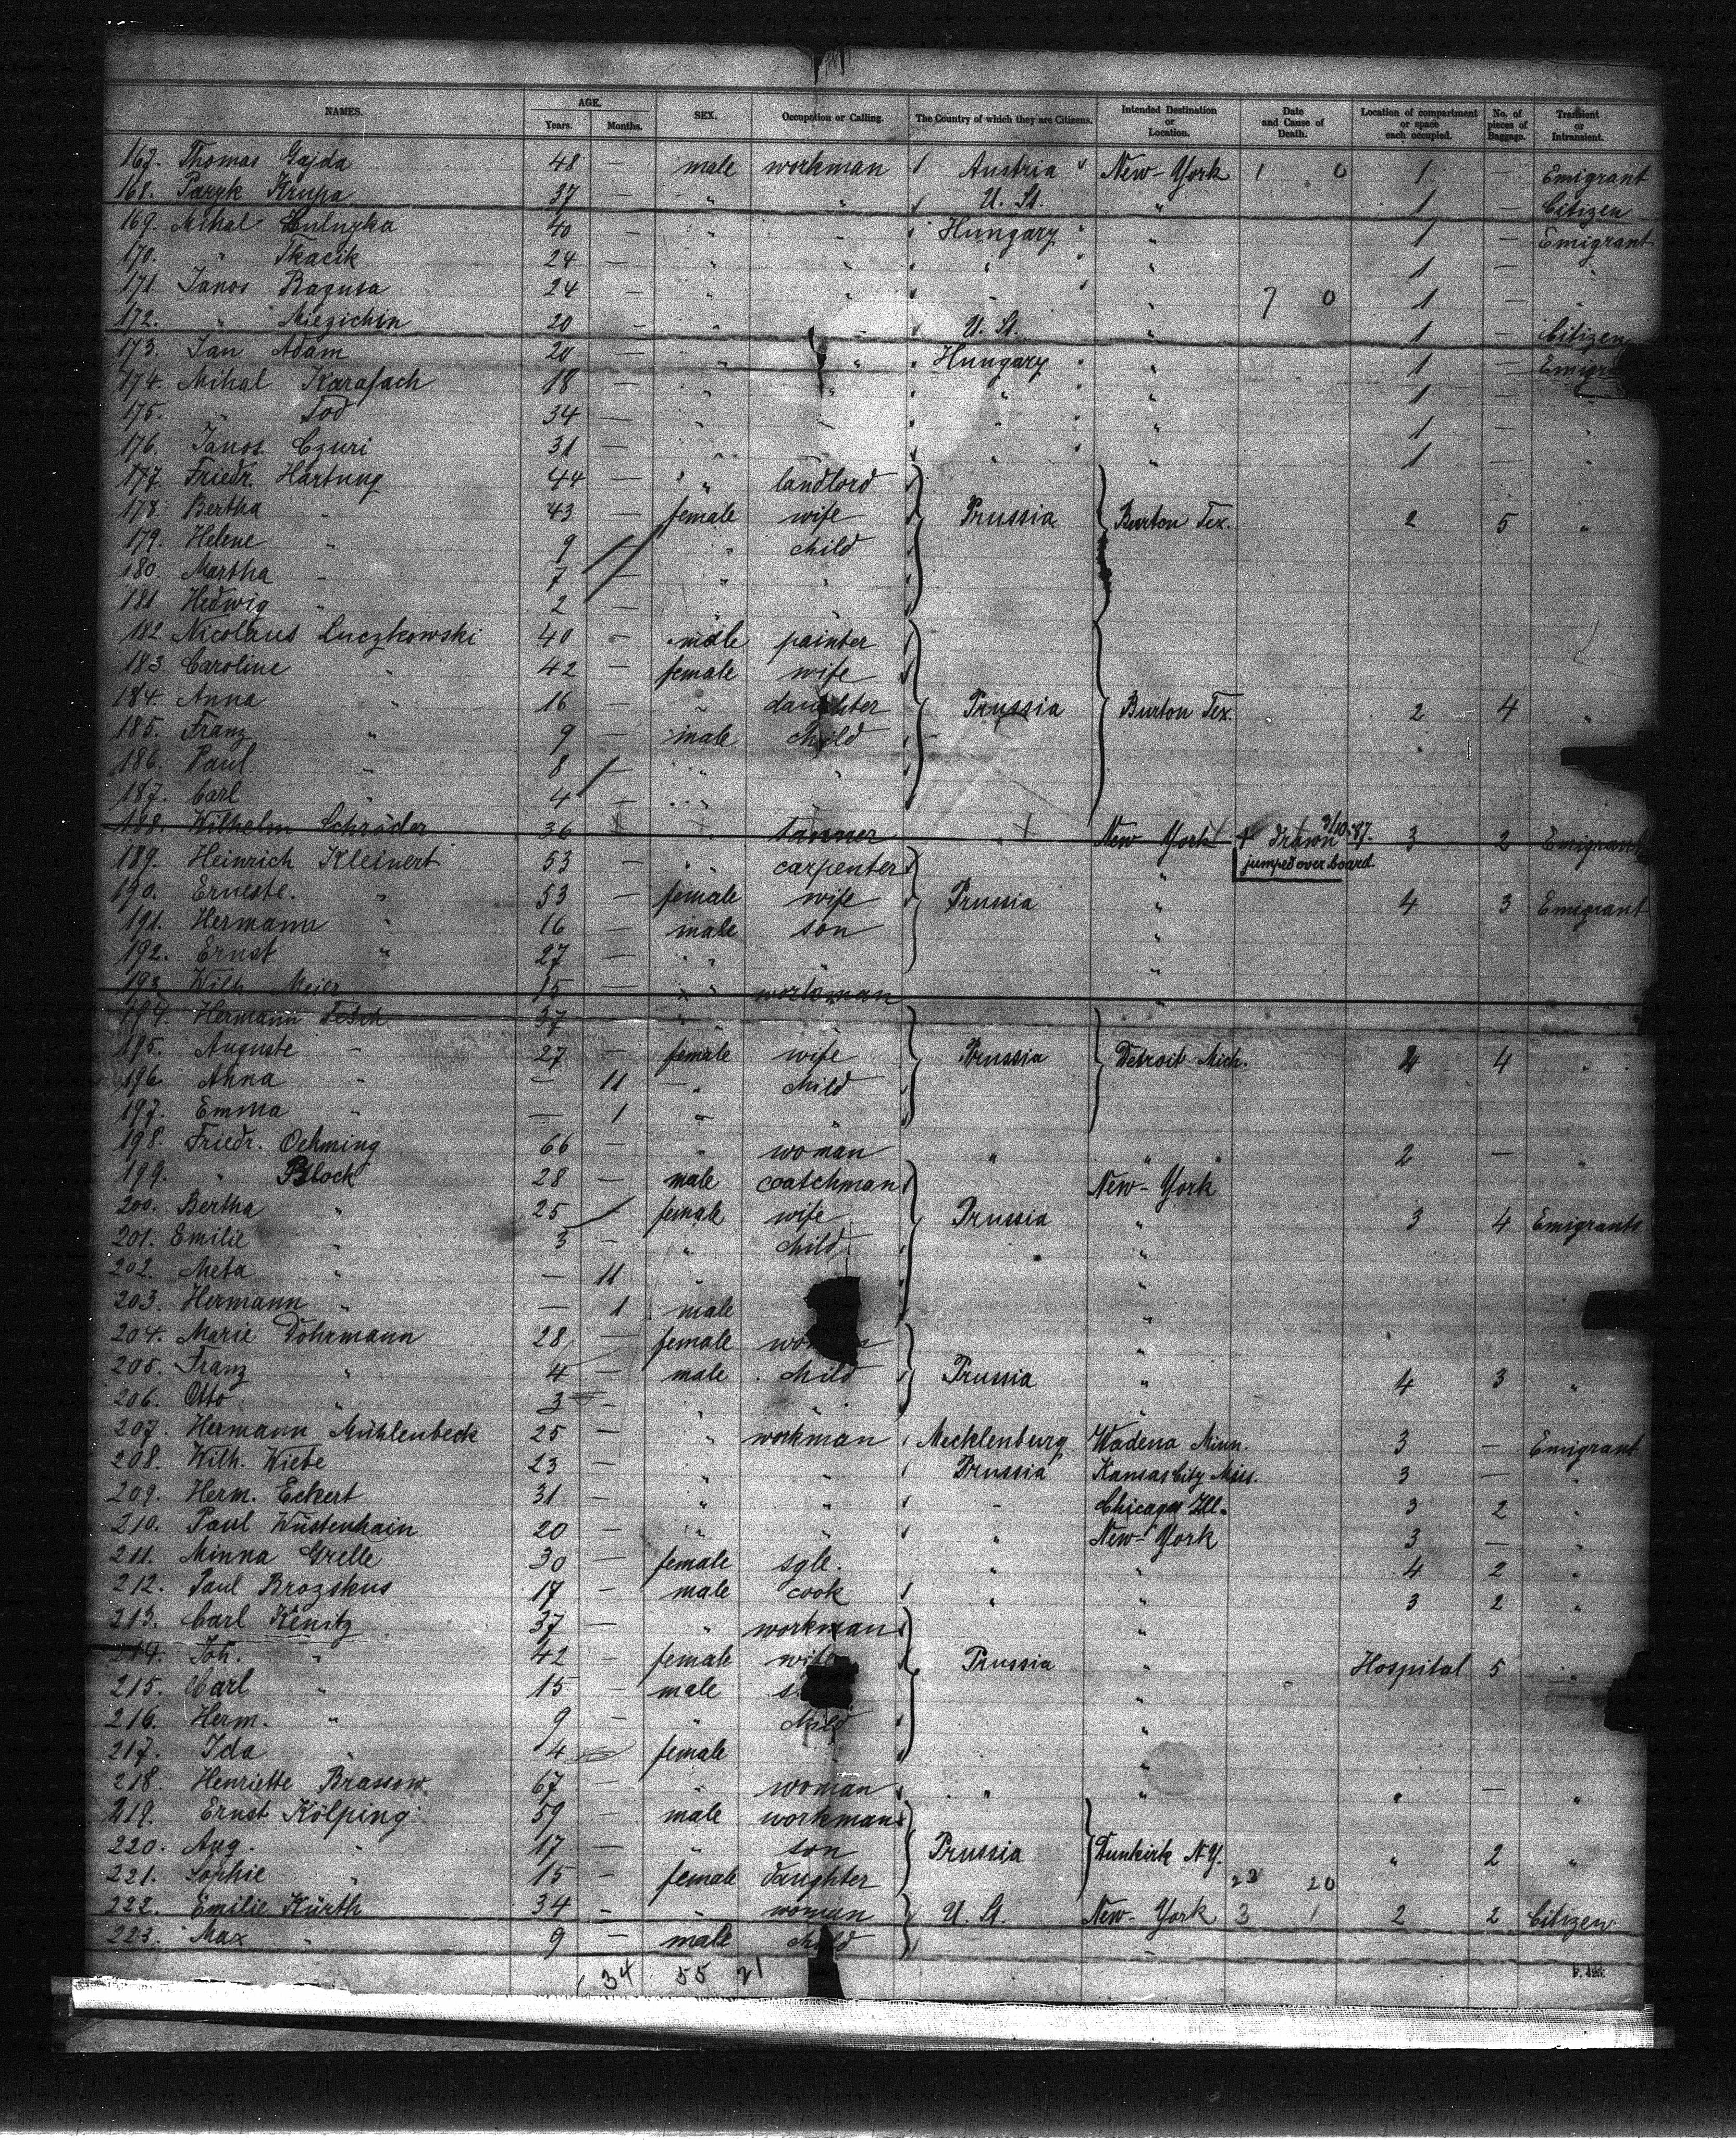 NAMES. AGE. Years. Months. SEX. Occupation or Calling. The Country of which they are Citizens. Intended Destination or Location. Date and Cause of Death. Location of compartment or space each occupied. No. of pieces of Baggage. Transient or Intransient.
167. Thomas Gajda 48 — male workman Austria New-York 1 0 1 — Emigrant
168. Paryk Krupa 37 — " " U. St. " 1 — Citizen
169. Mihal 40 — " " Hungary " 1 — Emigrant
170. " Tkacik 24 — " " " " 1 — "
171. Janos Ragusa 24 — " " " " 7 0 1 — "
172. " Miezichin 20 — " " U. St. " 1 — Citizen
173. Jan Adam 20 — " " Hungary " 1 —
174. Mihal Karafach 18 — " " " " 1 — "
175. " Tod 34 — " " " " 1 — "
176. Janos Czuri 31 — " " " " 1 — "
177. Friedr. Hartung 44 — " landlord
178. Bertha " 43 — female wife Prussia Burton Tex. 2 5 "
179. Helene " 9 — " child
180. Martha " 7 — " "
181 Hedwig " 2 — " "
182 Nicolaus Luczkowski 40 — male painter
183. Caroline " 42 — female wife
184. Anna " 16 — " daughter Prussia Burton Tex. 2 4 "
185. Franz " 9 — male child
186. Paul " 8 — " "
187. Carl " 4 — " "
188. Wilhelm Schröder 36 " tanner " New York + drawn 3/10.87. 3 2 Emigrant
jumped over board
189. Heinrich Kleinert 53 — " carpenter "
190. Erneste. " 53 — female wife Prussia " 4 3 Emigrant
191. Hermann " 16 — male son "
192. Ernst " 27 — " " "
193. Wilh. Meier 15 — " workman "
194. Hermann Tesch 37 "
195. Auguste " 27 — female wife Prussia Detroit Mich. 4 "
196 Anna " — 11 " child
197. Emma " — 1 " "
198. Friedr. Oehming 66 — " woman " " " 2 — "
199. " Block 28 — male coatchman New-York
200. Bertha " 25 — female wife Prussia " 3 4 Emigrants
201. Emilie " 3 — " child "
202. Meta " — 11 " "
203. Hermann " — 1 male "
204. Marie Dohrmann 28 — female "
205. Franz " 4 — male child Prussia " 4 3 "
206. Otto " 3 — " " "
207. Hermann Mühlenbeck 25 — " workman Mecklenburg Wadena Minn. 3 — Emigrant
208. Wilh. Wiebe 23 — " " Prussia Kansas City Miss. 3 — "
209. Herm. Eckert 31 — " " " Chicago Ill. 3 2 "
210. Paul Wüstenhain 20 — " " " New-York 3 — "
211. Minna Grelle 30 — female sgle. " " 4 2 "
212. Paul Brozskus 17 — male cook " " 3 2 "
213. Carl Kenitz 37 — " workman "
214. Joh. " 42 — female wife Prussia " Hospital 5 "
215. Carl " 15 — male "
216. Herm. " 9 — " child "
217. Ida " 4 — female "
218. Henriette Brassow. 67 — " woman " " " — "
219. Ernst Kölping 59 — male workman
220. Aug. " 17 — " son Prussia Dunkirk N.Y. " 2 "
221. Sophie " 15 — female daughter 20
222. Emilie Kürth 34 — " woman U. St. New-York 3 1 2 2 Citizen
223. Max " 9 — male child
34 55 21
F. 425.